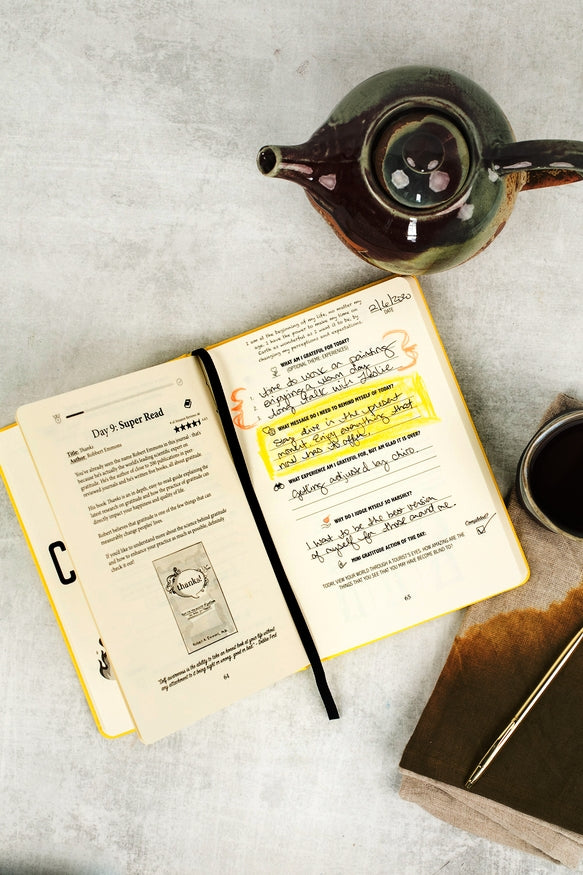 Day 9: Super Read
Title: Thanks
Author: Robert Emmons
You've already seen the name Robert Emmons in this journal - that's
because he's actually the world's leading scientific expert on
gratitude. He's the author of close to 200 publications in peer-
reviewed journals and he's written five books, all about gratitude.
His book Thanks is an in-depth, easy-to-read guide explaining the
latest research on gratitude and how the practice of gratitude can
directly impact your happiness and quality of life.
Robert believes that gratitude is one of the few things that can
measurably change peoples' lives.
If you'd like to understand more about the science behind gratitude
and how to enhance your practice as much as possible, definitely
check it out!
thanks!
"Self-awareness is the ability to take an honest look at your life without
any attachment to it being right or wrong, good or bad." - Debbie Ford
64
C
I am at the beginning of my life, no matter my
age. I have the power to make my time on
Earth as wonderful as I want it to be, by
changing my perceptions and expectations.
2/6/2020
DATE
WHAT AM I GRATEFUL FOR TODAY?
(OPTIONAL THEME: EXPERIENCES)
1. time to work on painting
2. enjoying a warm day
3. long talk with Leslie
WHAT MESSAGE DO I NEED TO REMIND MYSELF OF TODAY?
Stay alive in the present
moment. Enjoy everything that
now has to offer.
WHAT EXPERIENCE AM I GRATEFUL FOR, BUT AM GLAD IT IS OVER?
getting adjusted by chiro.
WHY DO I JUDGE MYSELF SO HARSHLY?
I want to be the best version
of myself for those around me.
MINI GRATITUDE ACTION OF THE DAY:
Completed?
TODAY, VIEW YOUR WORLD THROUGH A TOURIST'S EYES. HOW AMAZING ARE THE
THINGS THAT YOU SEE THAT YOU MAY HAVE BECOME BLIND TO?
65